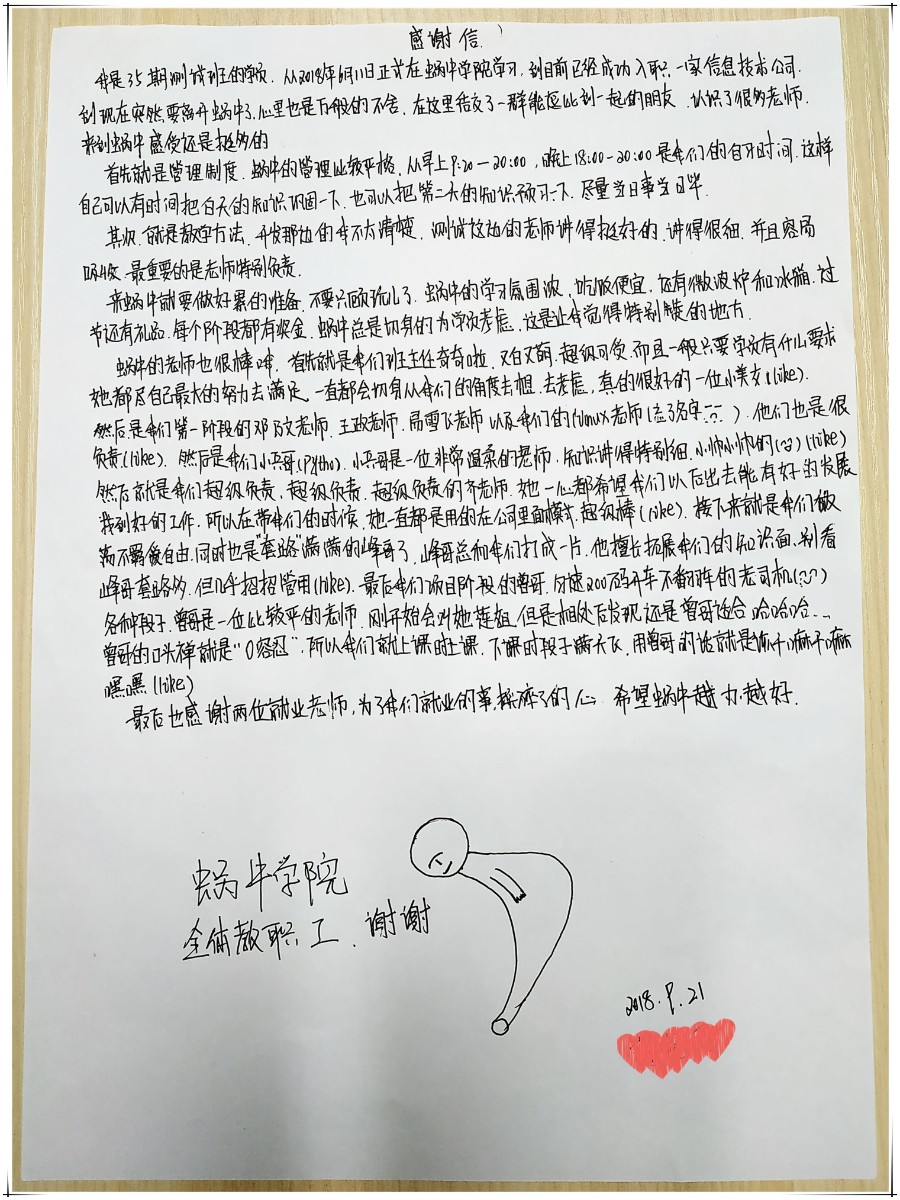 感谢信
我是35期测试班的学员.从2018年6月11日正式在蜗牛学院学习,到目前已经成功入职一家信息技术公司.
到现在突然要离开蜗牛了,心里也是万般的不舍,在这里结交了一群能应比到一起的朋友,认识了很多老师.
来到蜗牛感受还是挺多的
首先就是管理制度.蜗牛的管理比较严格,从早上9:20—20:00,晚上18:00-20:00是我们的自习时间.这样
自己可以有时间把白天的知识巩固一下.也可以把第二天的知识预习一下.尽量当日事当日毕.
其次.就是教学方法.开发那边的我不太清楚.测试这边的老师讲得挺好的.讲得很细.并且容易
吸收.最重要的是老师特别负责.
来蜗牛就要做好累的准备.不要只顾玩儿了.蜗牛的学习氛围浓,吃饭便宜,还有微波炉和冰箱.过
节还有礼品.每个阶段都有奖金.蜗牛总是切身的为学员考虑.这是让我觉得特别赞的地方.
蜗牛的老师也很棒哦.首先就是我们班主任奇奇啦,又白又萌.超级可爱.而且一般只要学员有什么要求
她都尽自己最大的努力去满足.一直都会切身从我们的角度去想.去考虑.真的很好的一位小美女(like).
然后是我们第一阶段的邓老师.王政老师.周雪飞老师以及我们的linux老师(忘了名字).他们也是很
负责(like).然后是我们小兵哥(Pytho).小兵哥是一位非常温柔的老师,知识讲得特别细.小帅小帅的(like)
然后就是我们超级负责,超级负责.超级负责的齐老师.她一心都希望我们以后出去能有好的发展
找到好的工作,所以在带我们的时候,她一直都是用的在公司里面模式.超级棒(like).接下来就是我们放
荡不羁爱自由.同时也是"套路"满满的峰哥了,峰哥总和我们打成一片.他擅长拓展我们的知识面.别看
峰哥套路多.但几乎招招管用(like).最后我们项目阶段的曾哥.时速200码开车不翻车的老司机
各种段子.曾哥是一位比较严的老师.刚开始会对她但是相处后发现还是曾哥适合哈哈哈...
曾哥的口头禅就是"0容忍",所以我们就上课时上课.下课时段子满天飞,用曾哥的话就是该干嘛干嘛
嘿嘿(like)
最后也感谢两位就业老师,为了我们就业的事,操碎了的心.希望蜗牛越办越好.
蜗牛学院
全体教职工.谢谢
2018.9.21